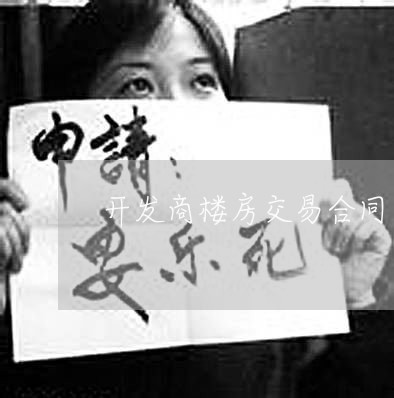 申請：
开发商楼房交易合同
安乐死